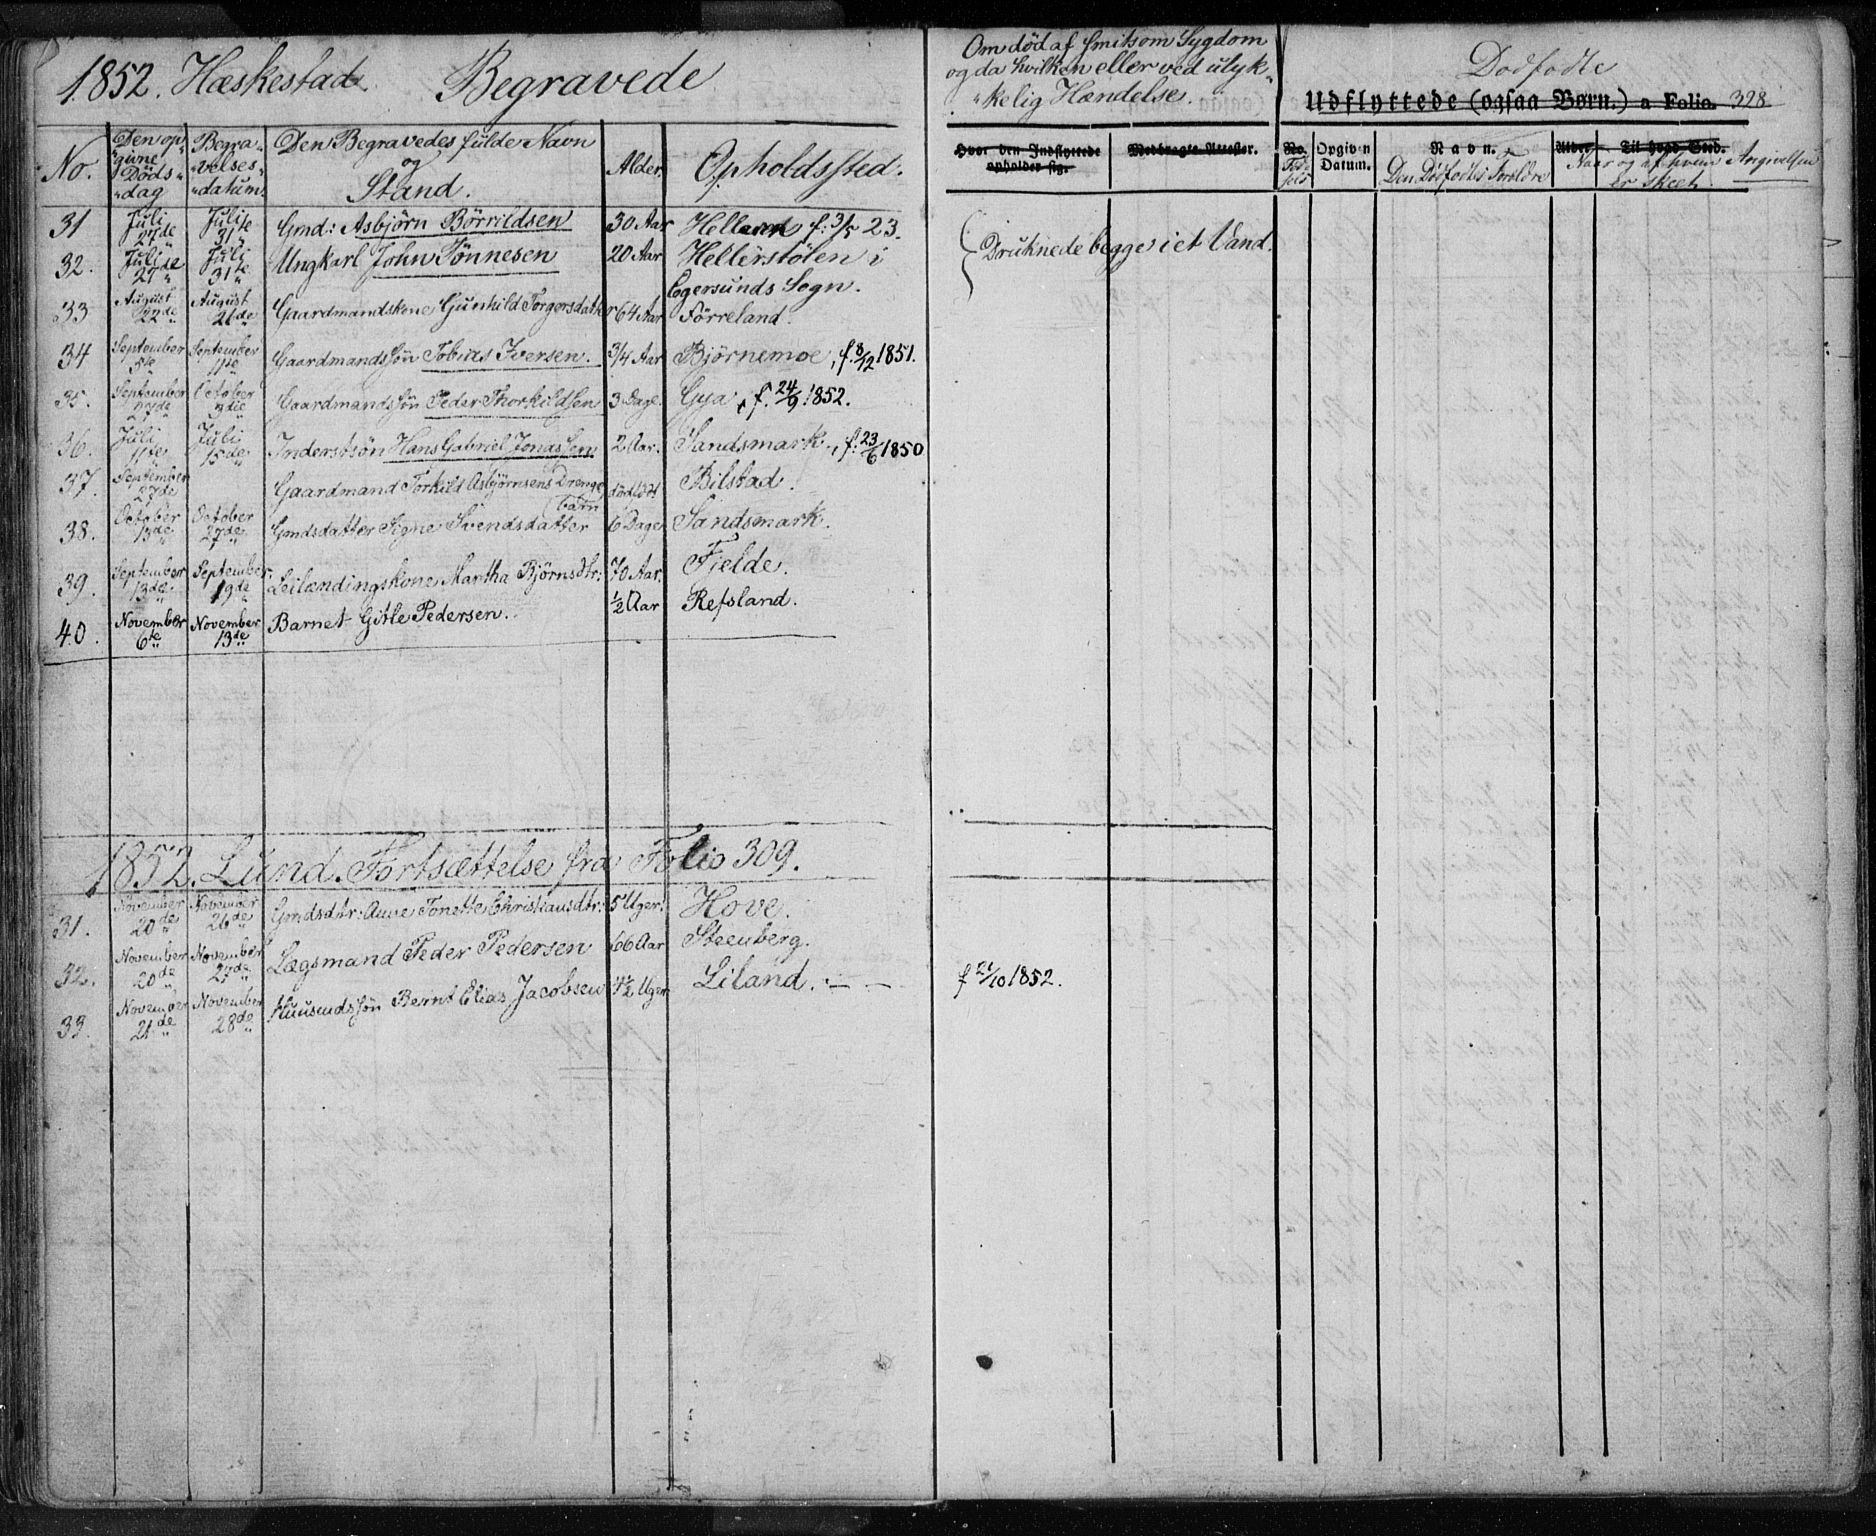 1852. Hæskestad. Begravede
Om död af smitsom Sygdom
og da hvilken eller ved ulyk-
"kelig Hændelse.
Dödfödte
Udflyttede (ogsaa Børn.) a Folio. 328
No.
Den op"
"givne
Döds"
"dag
Begra"
"velses"
"datum.
Den Begravedes fulde Navn
og
Stand.
Alder.
Opholdssted.
Hvor den Indflyttede
opholder sig.
Medbragte Attester.
No.
Opgiven
Datum.
Navn.
Den Dödfödtes Forældre
Alder.
Til hvad Sted.
Naar og af hvem Angivelsen
er skeet.
31 Juli 27de Juli 31te Gmd: Asbjörn Börrildsen 30 Aar Helleren f: 3/5 23.
32. Juli 27de Juli 31te Ungkarl John Tönnesen 20 Aar Hellerstölen i
Egersunds Sogn.
Druknede begge i et Vand.
33 August 22de August 26de Gaardmandskone Gunhild Torgersdatter 64 Aar Förreland.
34 September 5te September 11te Gaardmandssön Tobias Iversen. 3/4 Aar Björnemoe, f. 8/12 1851.
35. September 27de October 3die Gaardmandssön Peder Thorkildsen 3 Dage. Gya, f. 24/9 1852.
36. Juli 11te Juli 15de Inderstsön Hans Gabriel Jonassen 2 Aar. Sandsmark, f. 23/6 1850
37. September 27de Gaardmand Torkild Asbjörnsens Drenge
barn dödfödt Bilstad.
38. October 13de October 27de Gmdsdatter Signe Svendsdatter 6 Dage Sandsmark.
39. September 13de September 19de Leilændingskone Martha Björnsdtr: 70 Aar. Fjelde.
40. November 6te November 13de Barnet Gitle Pedersen. 1/2 Aar Refsland.
1852. Lund. Fortsættelse fra Folio 309.
31. November 20de November 26de Gmdsdtr: Anne Tonette Christiansdtr: 5 Uger. Hove.
32. November 20de November 27de Lægsmand Peder Pedersen 66 Aar Steenberg.
33. November 21de November 28de Huusmdssön Bernt Elias Jacobsen 4 1/2 Uger Liland. f 21/10 1852.